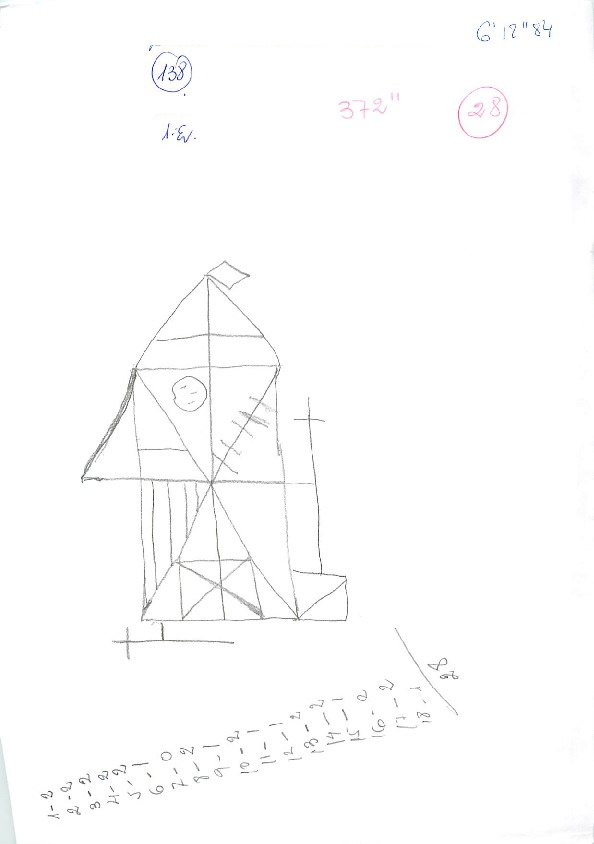 6'12"84
138
372"
28
1-2
2-2
3-2
4-2
5-2
6-1
7-0
8-2
9-1
10-2
11-1
12-1
13-2
14-2
15-1
16-2
17-2
18-1
28